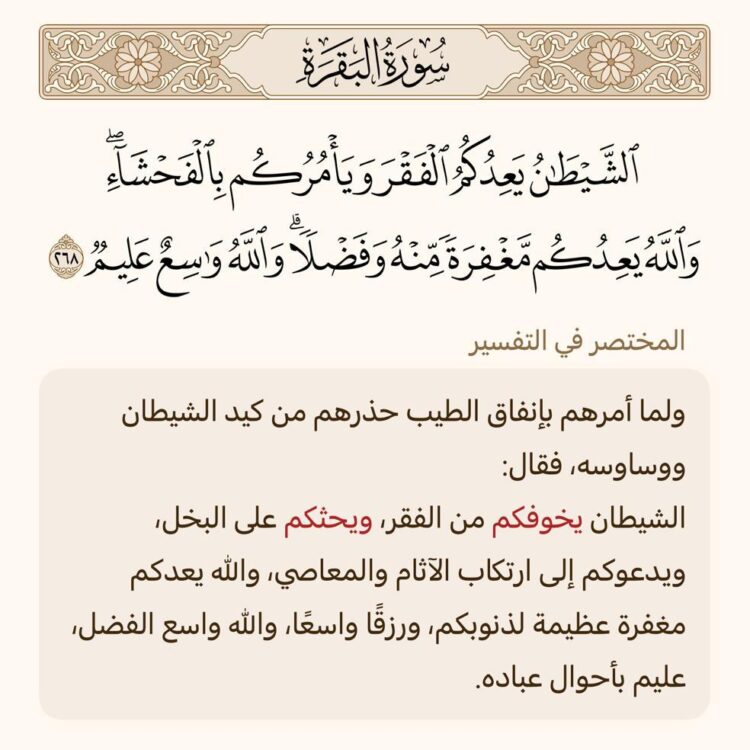 سُورَةُ البَقَرَةِ
ٱلشَّيۡطَٰنُ يَعِدُكُمُ ٱلۡفَقۡرَ وَيَأۡمُرُكُم بِٱلۡفَحۡشَآءِۖ
وَٱللَّهُ يَعِدُكُم مَّغۡفِرَةٗ مِّنۡهُ وَفَضۡلٗاۗ وَٱللَّهُ وَٰسِعٌ عَلِيمٞ ٢٦٨
المختصر في التفسير
ولما أمرهم بإنفاق الطيب حذرهم من كيد الشيطان
ووساوسه، فقال:
الشيطان يخوفكم من الفقر، ويحثكم على البخل،
ويدعوكم إلى ارتكاب الآثام والمعاصي، والله يعدكم
مغفرة عظيمة لذنوبكم، ورزقًا واسعًا، والله واسع الفضل،
عليم بأحوال عباده.